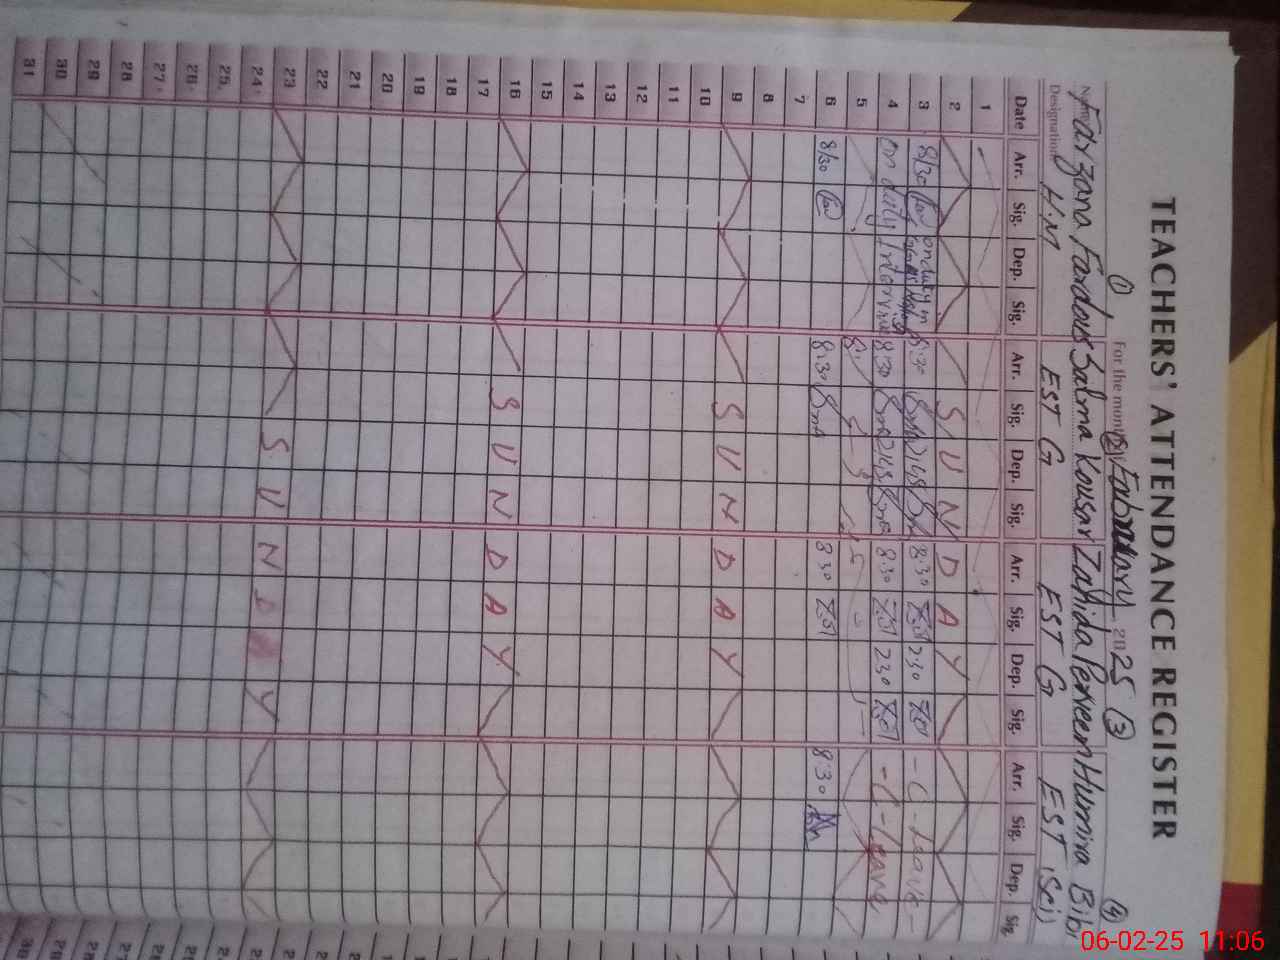 TEACHERS' ATTENDANCE REGISTER
(1) For the month of (2) Fabruary 2025 (3) (4)
Name Farzana Fardous Salma Kousar Zahida Perveen Humira Bibi
Designation H.M EST G EST G EST (Sci)
Date Arr. Sig. Dep. Sig. Arr. Sig. Dep. Sig. Arr. Sig. Dep. Sig. Arr. Sig. Dep. Sig.
1
2 S U N D A Y
3 8/30 on duty 8:30 2:45 8:30 230 - C - Leave -
4 on duty 8:30 2:45 8:30 230 - C - Leave
5
6 8/30 8:30 830 8:30
7
8
9 S U N D A Y
10
11
12
13
14
15
16 S U N D A Y
17
18
19
20
21
22
23 S U N D A Y
24
25
26
27
28
29
30
31
06-02-25 11:06